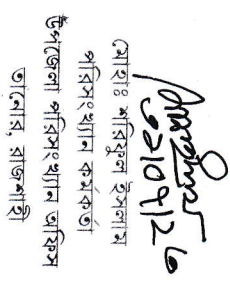 মোঃ শরিফুল ইসলাম
পরিসংখ্যান কর্মকর্তা
উপজেলা পরিসংখ্যান অফিস
তানোর, রাজশাহী